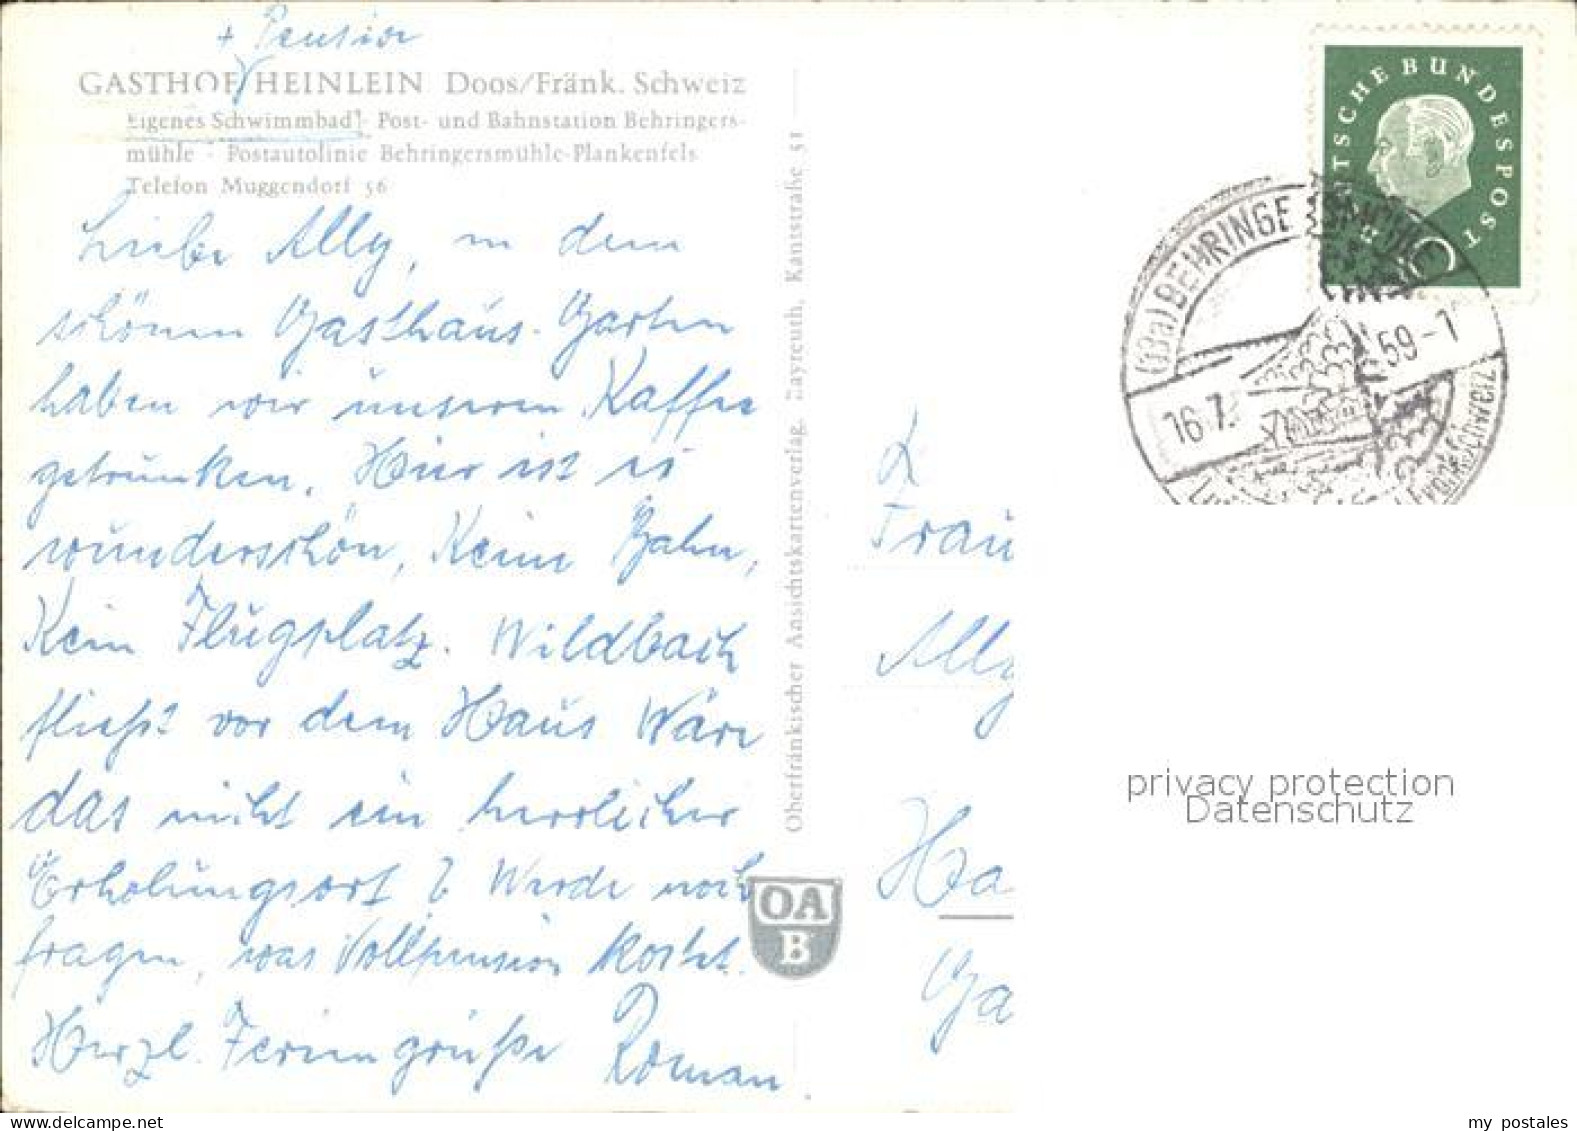 + Pension
GASTHOF HEINLEIN Doos/Fränk. Schweiz
Eigenes Schwimmbad - Post- und Bahnstation Behringers-
mühle - Postautolinie Behringersmühle-Plankenfels
Telefon Muggendorf 56
Liebe Ally, in dem
schönen Gasthaus-Garten
haben wir unseren Kaffee
getrunken. Hier ist es
wunderschön, Keine Bahn,
Kein Flugplatz. Wildbach
fließt vor dem Haus Wäre
das nicht ein herrlicher
Erholungsort? Werde noch
fragen, was Vollpension kostet.
Herzl. Feriengrüße Roman
Oberfränkischer Ansichtskartenverlag, Bayreuth, Kantstraße 51
OA
B
DEUTSCHE BUNDESPOST
(13a) BEHRINGERSMÜHLE
16.7.59-1
Fränk. Schweiz
Frau
Ally
Ha
Ga
privacy protection
Datenschutz
my postales